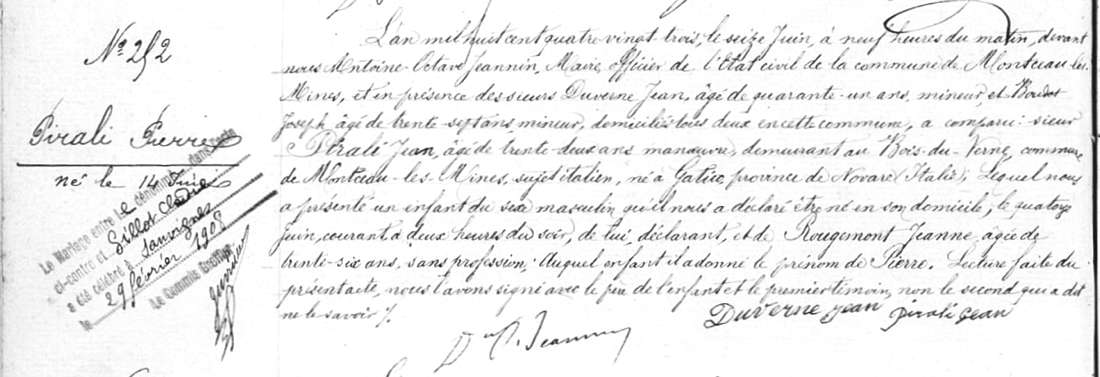 No 252
Pirali Pierre
né le 14 Juin
Le Mariage entre le dénommé dans l'acte
ci-contre et Gillot Claudine
a été célébré à Sanvignes
le 29 février 1908
Le Commis Greffier
L'an mil huit cent quatre vingt trois, le seize Juin, à neuf heures du matin, devant
nous Antoine-Octave Jeannin, Maire Officier de l'Etat civil de la commune de Montceau-les-
Mines, et en présence des sieurs Duverne Jean, âgé de quarante-un ans, mineur, et Boudot
Joseph âgé de trente-sept ans, mineur, domiciliés tous deux en cette commune, a comparu: sieur
Pirali Jean, âgé de trente-deux ans manœuvre, demeurant au Bois-du-Verne, commune
de Montceau-les-Mines, sujet italien, né à province de Novare (Italie); Lequel nous
a présenté un enfant du sexe masculin qu'il nous a déclaré être né en son domicile, le quatorze
Juin, courant à deux heures du soir, de lui, déclarant, et de Rougemont Jeanne, âgée de
trente-six ans, sans profession; Auquel enfant il a donné le prénom de Pierre. Lecture faite du
présent acte, nous l'avons signé avec le père de l'enfant et le premier témoin, non le second qui a dit
ne le savoir /.
Duverne Jean pirali Jean
Jeannin